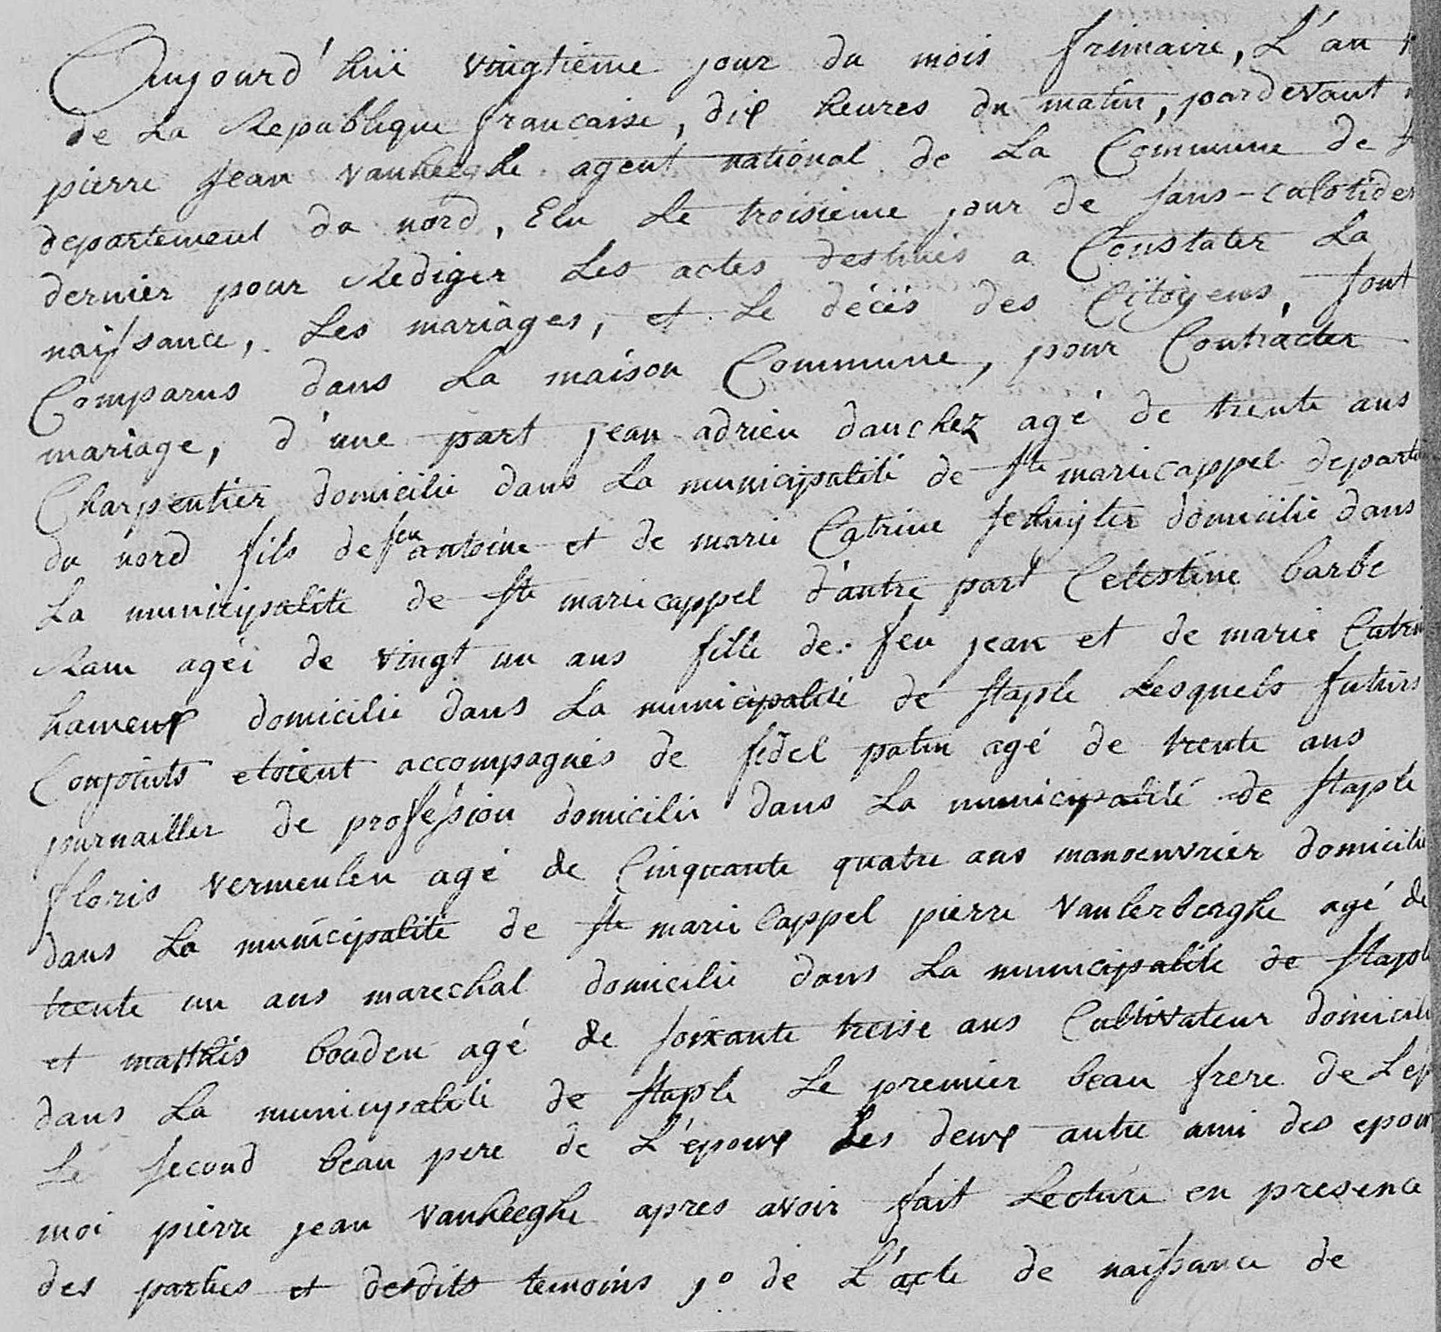 Aujourd'hüi vingtieme jour du mois frimaire, L'an
de La Republique francaise, dix heures du matin, pardevant
pierre jean vanheeghe agent national de La Commune de
departement du nord, Elu Le troisieme jour de sans-culotides
dernier pour Rediger Les actes destinés a Constater La
naissance, Les mariages, et Le décès des Citoyens, sont
Comparus dans La maison Commune, pour Contracter
mariage, d'une part jean adrien danchez agé de trente ans
Charpentier domicilié dans La municipalité de Ste mariecappel depart
du nord fils de feu antoine et de marie Catrine schuyter domicilié dans
La municipalité de Ste mariecappel d'autre part Celestine barbe
Ram ageé de vingt un ans fille de feu jean et de marie Catrin
hameux domicilié dans La municipalité de staple Lesquels futurs
Conjoints etoient accompagnés de fidel patin agé de trente ans
journailler de profession domicilié dans La municipalité de staple
floris vermeulen agé de Cinquante quatre ans manoeuvrier domicilié
dans La municipalité de Ste marie Cappel pierre vanlerberghe agé de
trente un ans marechal domicilié dans La municipalité de staple
et matthis bouden agé de soixante treise ans Cultivateur domicilié
dans La municipalité de staple Le premier beau frere de L'ep
Le second beau pere de L'epoux Les deux autre ami des epoux
moi pierre jean vanheeghe apres avoir fait Lecture en presence
des parties et desdits temoins 1º de L'acte de naissance de